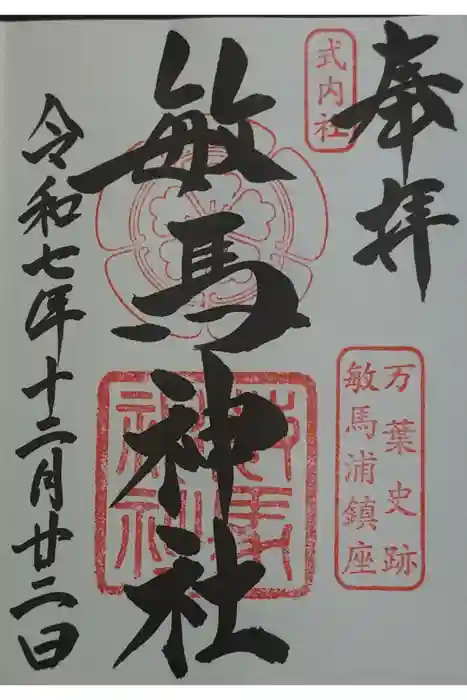 奉拝
式内社
万葉史跡
敏馬浦鎮座
敏馬神社
令和七年十二月廿二日